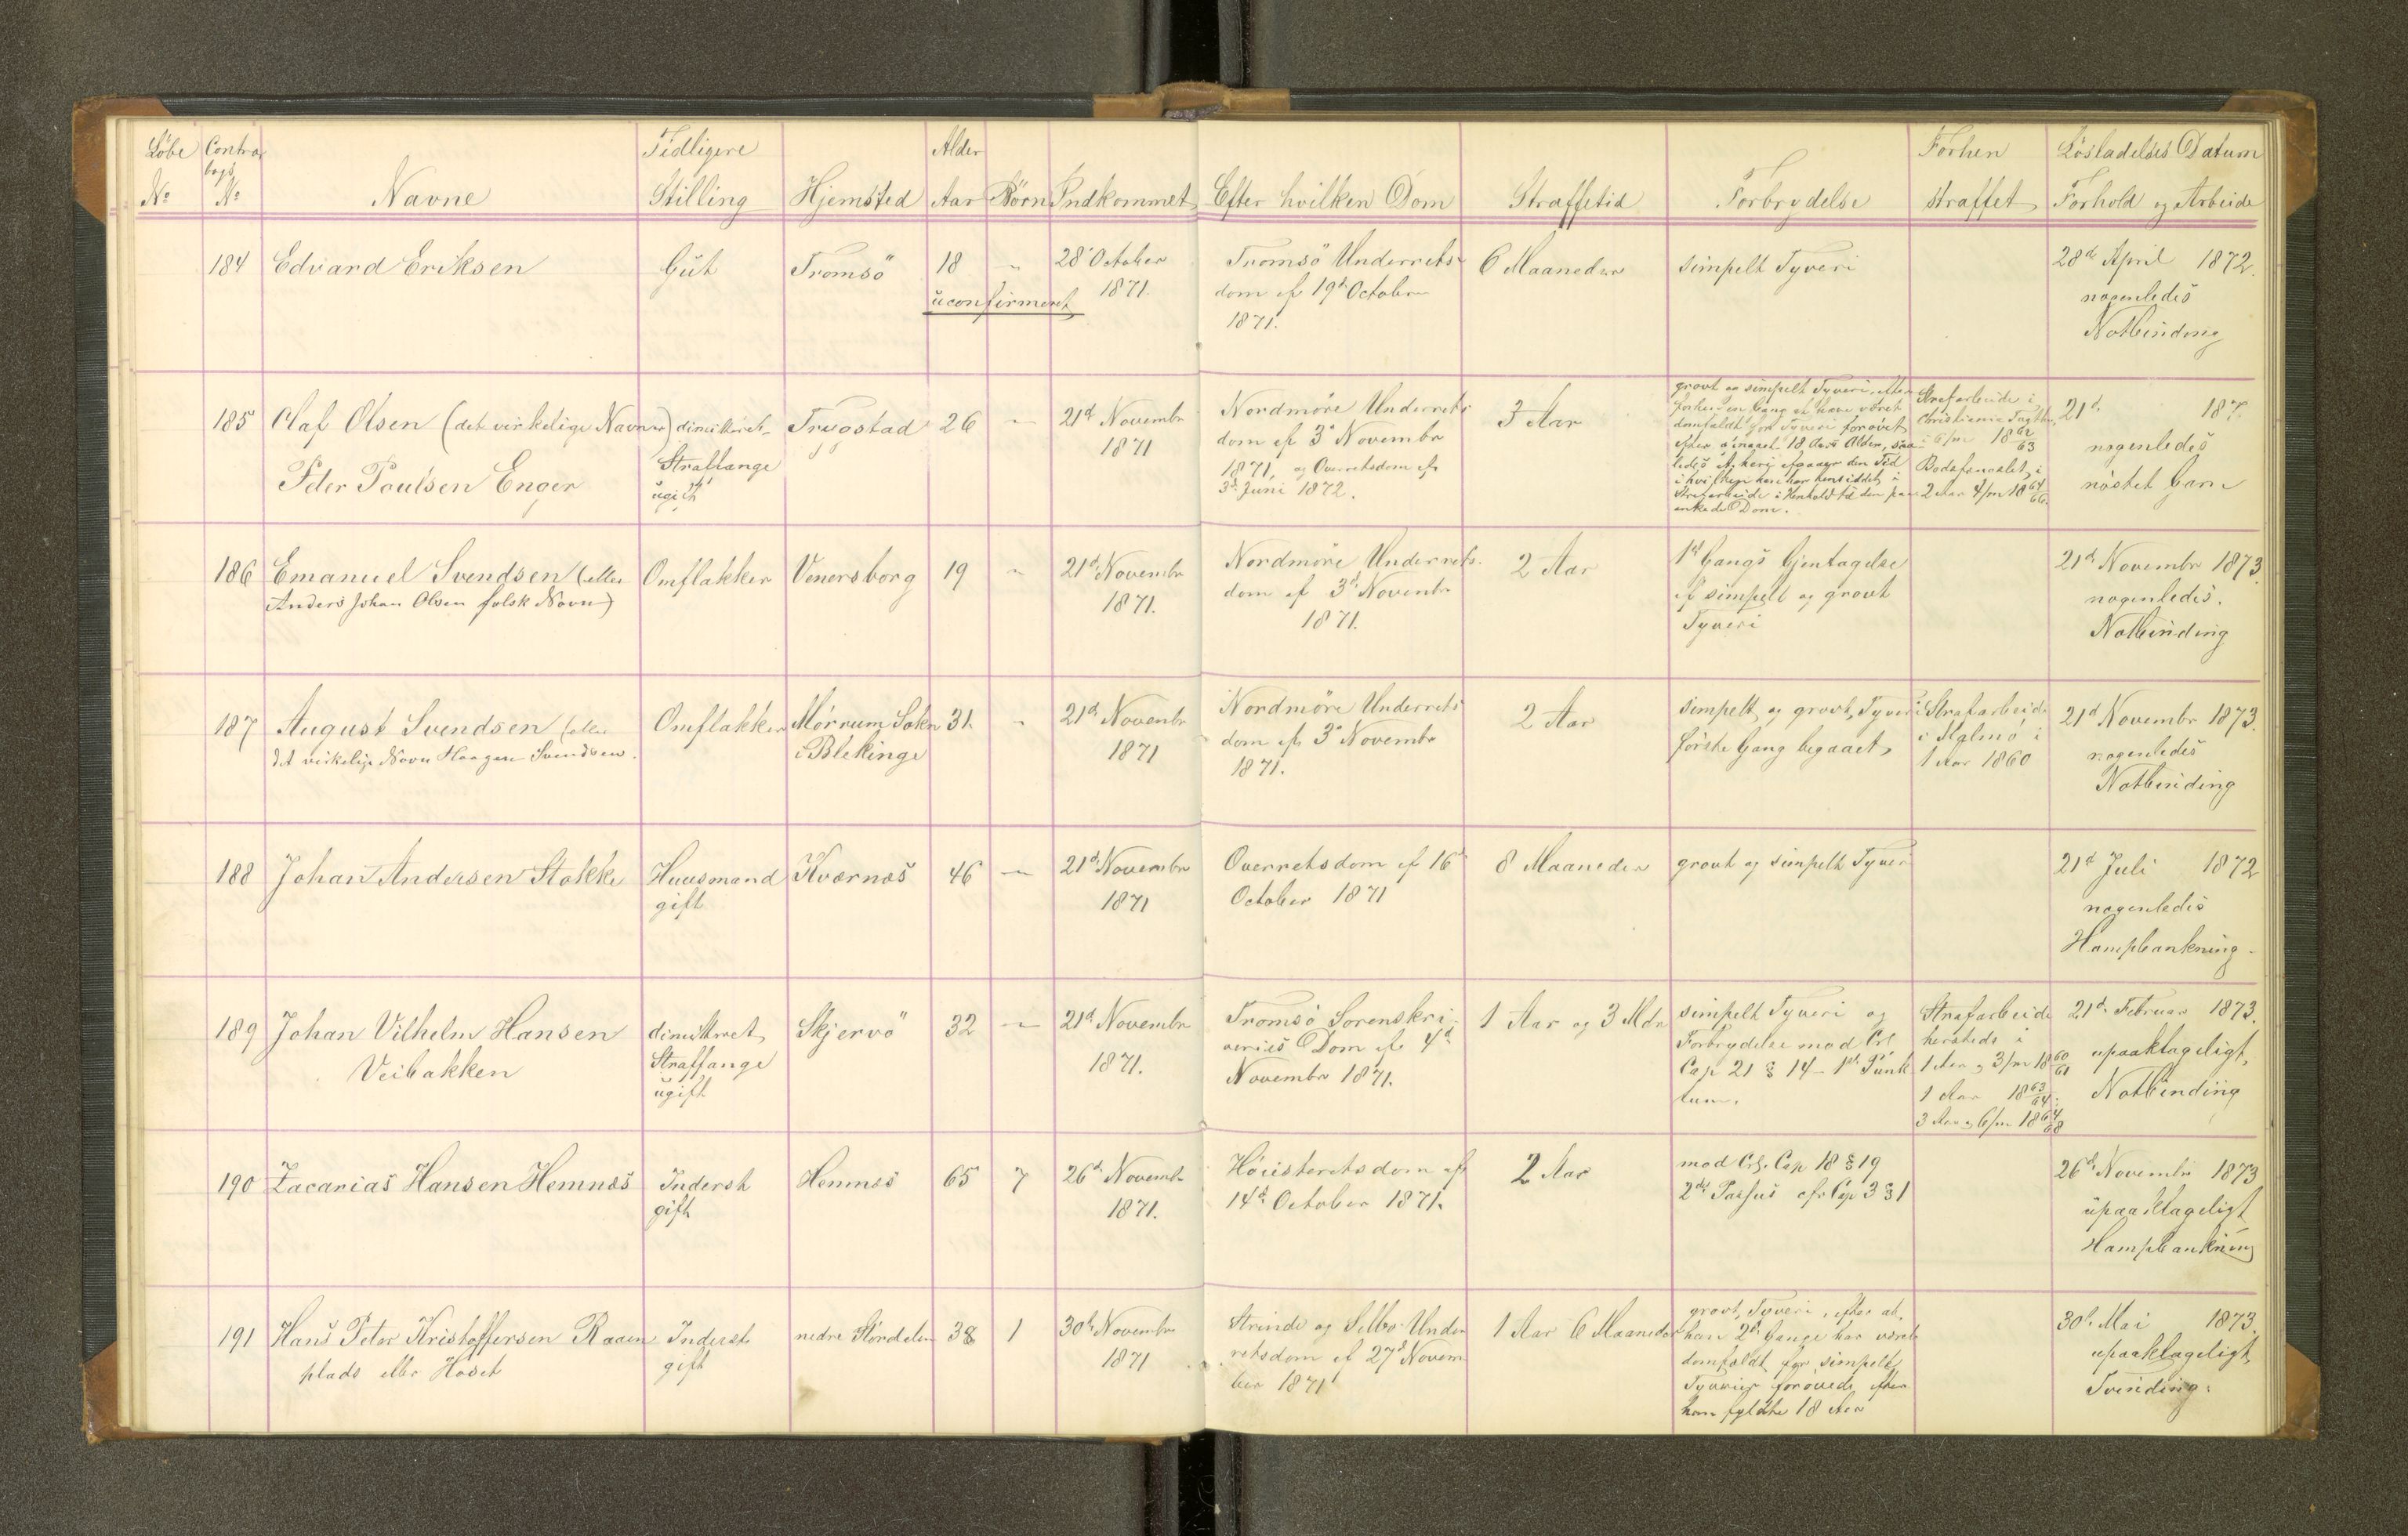 Løbe Contra Tidligere Alder Forhen Lösladelses Datum
bogs
No No Navne Stilling Hjemsted Aar Börn Indkommet Efter hvilken Dom Straffetid Forbrydelse straffet Forhold og Arbeide
184 Edvard Eriksen Gut Tromsö 18 " 28 October Tromsö Underrets- 6 Maaneder simpelt Tyveri 28d April 1872.
uconfirmeret 1871. dom af 19d October nogenledes
1871. Notbinding
185 Olaf Olsen (det virkelige Navn er) dimitteret Trygstad 26 " 21d Novembr Nordmöre Underrets 3 Aar grovt og simpelt Tyveri, efter Strafarbeide i 21d 187
Peder Paulsen Enger Straffange 1871 dom af 3d Novembr forhen en Gang at have været Christiania Tugthus nogenledes
ugift 1871, og Overretsdom af domfældt for Tyveri forövet i 6/m 1862/63 nöstet Garn
3d Juni 1872. efter opnaaet 18 Aars Alder, saa- Bodsfængslet i
ledes at heri afgaaer den Tid 2 Aar 4/m 1864/66
i hvilken han har hensiddet i
Strafarbeide i Henhold til den paa-
ankede Dom.
186 Emanuel Svendsen (eller Omflakker Venersborg 19 " 21d Novembr Nordmöre Underrets- 2 Aar 1st Gangs Gjentagelse 21d Novembr 1873.
Anders Johan Olsen falsk Navn) 1871. dom af 3d Novembr af simpelt og grovt nogenledes.
1871. Tyveri Notbinding
187 August Svendsen (eller Omflakker Mörrum Sokn 31. " 21d Novembr Nordmöre Underrets 2 Aar simpelt og grovt Tyveri Strafarbeide 21d Novembr 1873.
det virkelige Navn Haagen Svendsen. i Blekinge 1871 dom af 3d Novembr förste Gang begaaet, i Malmö i nogenledes
1871. 1 Aar 1860 Notbinding
188 Johan Andersen Stokke Huusmand Kværnæs 46 " 21d Novembr Overretsdom af 16d 8 Maaneder grovt og simpelt Tyveri 21d Juli 1872
gift 1871 October 1871 nogenledes
Hampbankning
189 Johan Vilhelm Hansen dimitteret Skjervö 32 " 21d Novembr Tromsö Sorenskri- 1 Aar og 3 Mdr simpelt Tyveri og Strafarbeide 21d Februar 1873.
Veibakken Straffange 1871. veries Dom af 4d Forbrydelse mod Crl. hersteds i upaaklageligt,
ugift Novembr 1871. Cap 21 § 14 1st Punk- 1 Aar og 3/m 1860/61 Notbinding
tum. 1 Aar 1863/64.
3 Aar og 6/m 1864/68
190 Zacarias Hansen Hemnæs Inderst Hemnæs 65 7 26d Novembr Höiesteretsdom af 2 Aar mod Crl. Cap 18 § 19 26d Novembr 1873
gift 1871. 14d October 1871. 2det Passus cfr Cap 3 § 1 upaaklageligt
Hampbankning
191 Hans Peter Kristoffersen Raaen Inderst nedre Stördalen 38 1 30d Novembr Strinde og Selbo Under- 1 Aar 6 Maaneder grovt Tyveri, efter at 30d Mai 1873.
plads eller Hoset gift 1871 retsdom af 27d Novem- han 2de Gange har været upaaklageligt,
ber 1871 domfældt for simpelt Tvinding.
Tyverier forövede efter
han fyldte 18 Aar